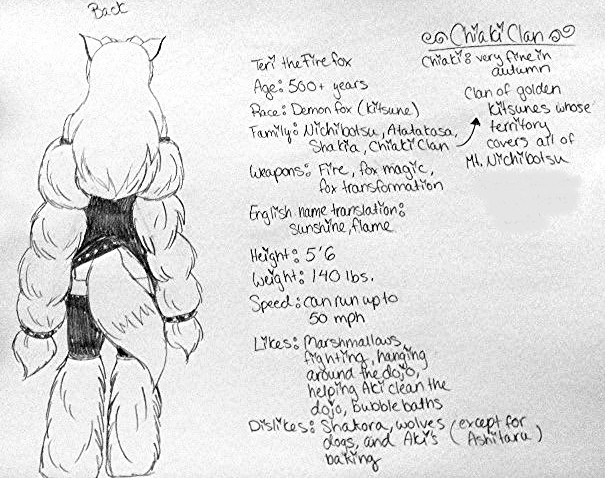 Back
Teri the Fire fox
Age: 500+ years
Race: Demon fox (kitsune)
Family: Nichibotsu, Atatakasa,
Shakia, Chiaki Clan
Weapons: Fire, fox magic,
fox transformation
English name translation:
sunshine, flame
Height: 5'6
Weight: 140 lbs.
Speed: can run up to
50 mph
Likes: Marshmallows,
fighting, hanging
around the dojo,
helping Aki clean the
dojo, bubble baths
Dislikes: Shakora, wolves (except for
dogs, and Aki's Ashitaru)
baking
Chiaki Clan
Chiaki: very fine in
autumn
Clan of golden
kitsunes whose
territory
covers all of
Mt. Nichibotsu